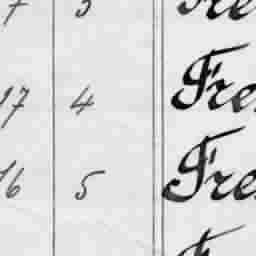 7 3 Fre
17 4 Fre
16 5 Fre